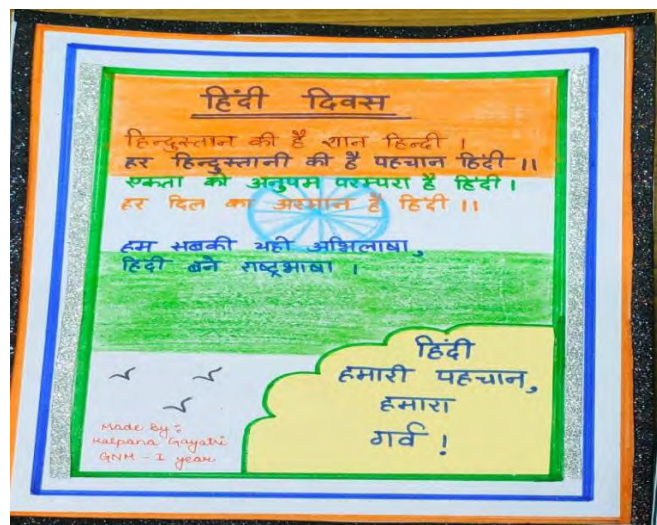 हिंदी दिवस
हिन्दुस्तान की है शान हिन्दी ।
हर हिन्दुस्तानी की है पहचान हिंदी ।।
एकता की अनुपम परम्परा है हिंदी ।
हर दिल का अरमान है हिंदी ।।
हम सबकी यही अभिलाषा,
हिंदी बने राष्ट्रभाषा ।
हिंदी
हमारी पहचान,
हमारा
गर्व !
Made by :
Kalpana Gayatri
GNM - I year